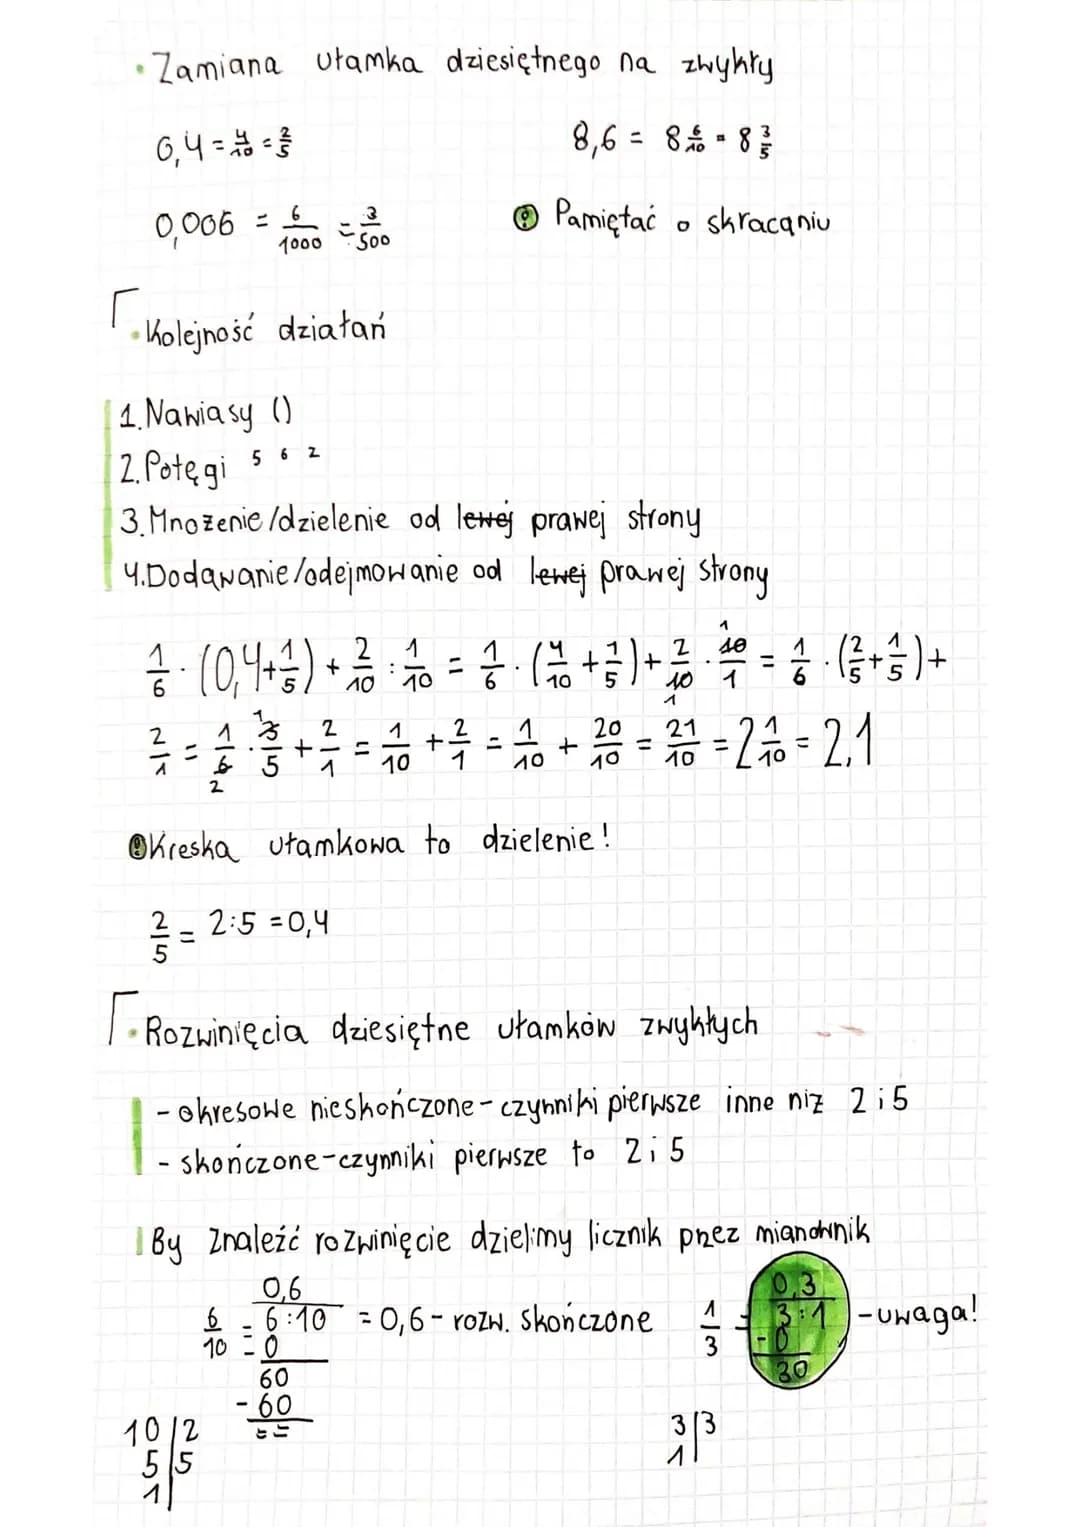 • Zamiana ułamka dziesiętnego na zwykły
0,4 = 4/10 = 2/5
8,6 = 8 6/10 = 8 3/5
0,006 = 6/1000 = 3/500
! Pamiętać o skracaniu
• Kolejność działań
1. Nawiasy ()
2. Potęgi 5 6 2
3. Mnożenie/dzielenie od lewej prawej strony
4. Dodawanie/odejmowanie od lewej prawej strony
1/6 · (0,4+1/5) + 2/10 : 1/10 = 1/6 · (4/10 + 1/5) + 2/10 1 · 1 10/1 = 1/6 · (2/5 + 1/5) +
2/1 = 1/6 2 · 1 3/5 + 2/1 = 1/10 + 2/1 = 1/10 + 20/10 = 21/10 = 2 1/10 = 2,1
! Kreska ułamkowa to dzielenie!
2/5 = 2:5 = 0,4
• Rozwinięcia dziesiętne ułamków zwykłych
- okresowe nieskończone - czynniki pierwsze inne niz 2 i 5
- skończone - czynniki pierwsze to 2 i 5
By znaleźć rozwinięcie dzielimy licznik przez mianownik
0,6
6/10 = 6:10 = 0,6 - rozw. skończone
- 0
60
- 60
= =
10 | 2
5 | 5
1 |
0,3
1/3 = 3:1 - uwaga!
- 0
30
3 | 3
1 |